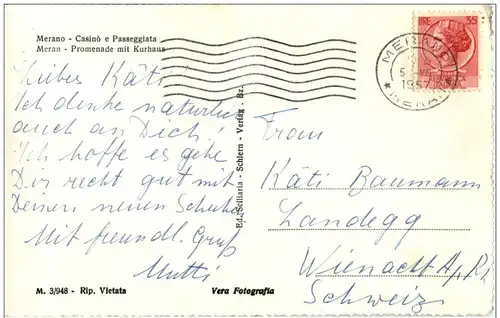 Merano - Casinò e Passeggiata
Meran - Promenade mit Kurhaus
LIRE 35
MERANO
1957
MERANO
Liebes Käti!
Ich denke natürlich
auch an Dich!
Ich hoffe es gehe
Dir recht gut mit
Deinen neuen Schuhen
Mit freundl. Gruß
Mutti
Ed. Sciliaria - Schlern - Verlag, Bz.
Frau
Käti Baumann
Landegg
Wienacht
Schweiz
M. 3/948 - Rip. Vietata
Vera Fotografia